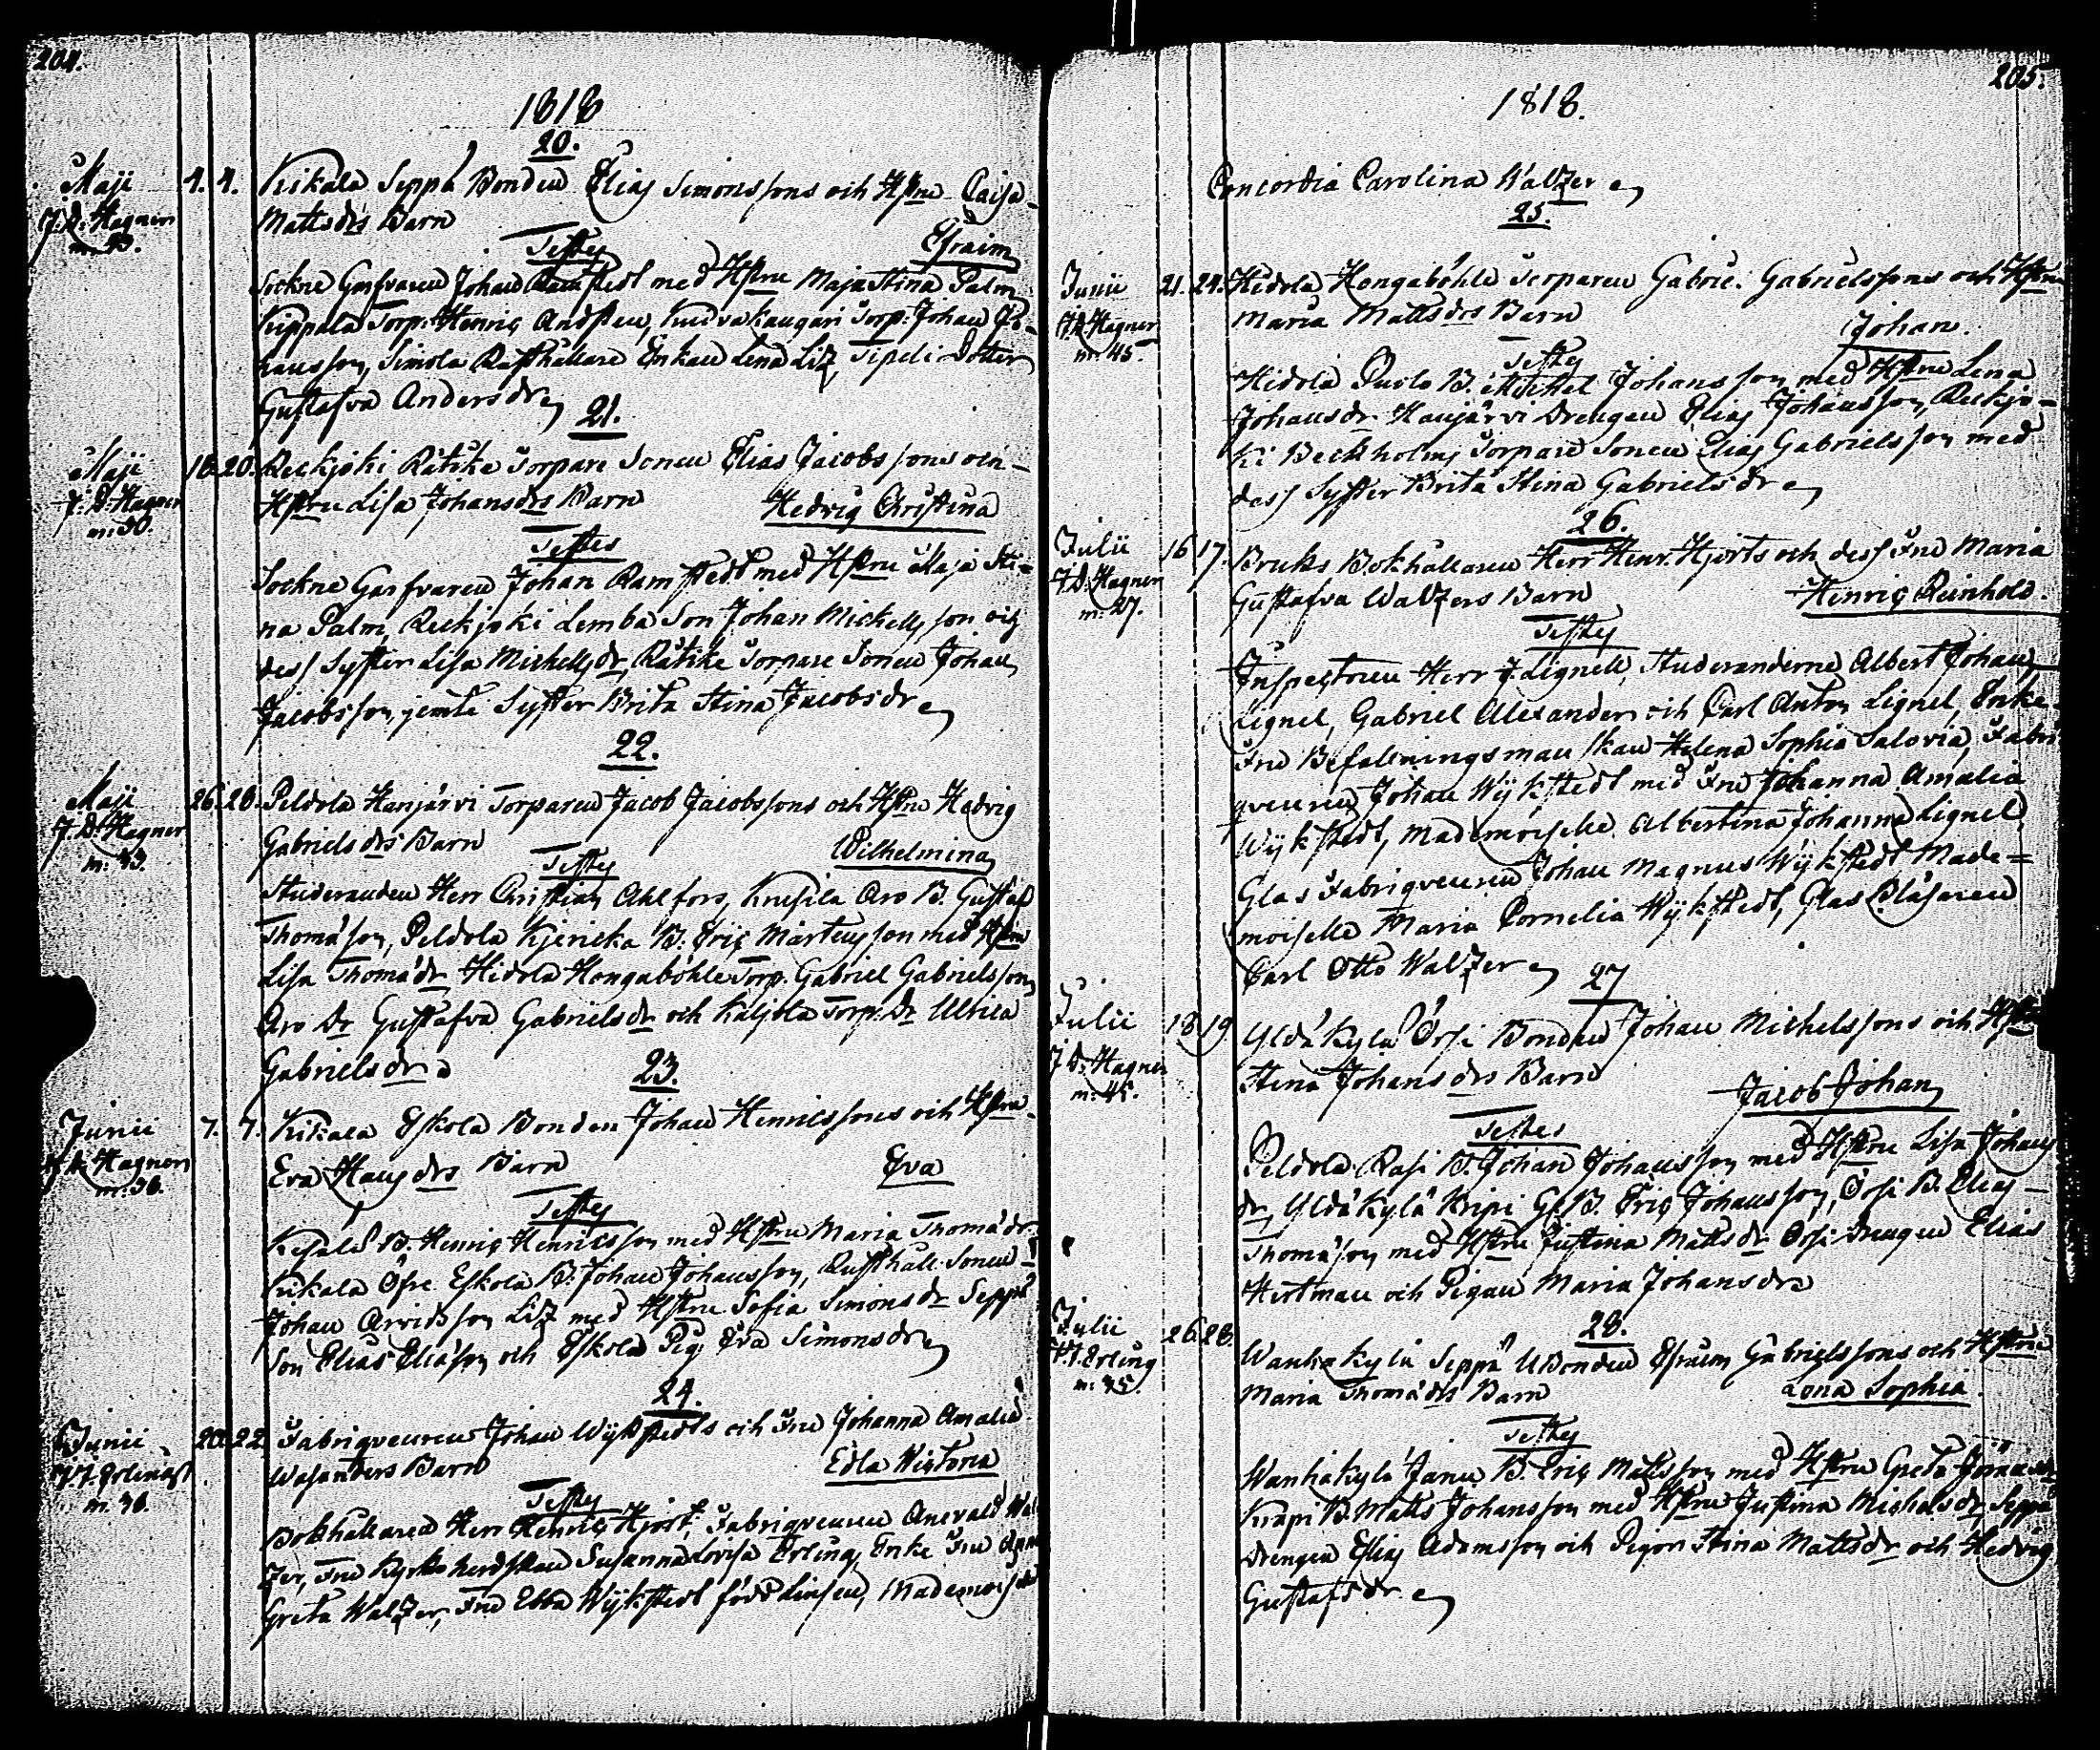 204.
1818
20.
Maji 4. 4. Kikala Seppä Bonden Elias Simonssons och Hstru Caisa
J. D. Hagner Mattsdrs Barn
Efraim
Testes
Sockne Garfvaren Johan Ramstedt med Hstru Maja Stina Palm
Kippala Torp. Henric Andssen, Torp: Johan Jo-
hansson, Simola Rusthållare Enkan Lena Liz, Sipeli Dotter
Gustafva Andersdr
21.
Maji 20. Reckjoki Rätikä Torpare Sonen Elias Jacobssons och
J. D. Hagner Hstru Lisa Johansdrs Barn Hedvig Christina
m: 30.
Testes
Sockne Garfvaren Johan Ramstedt med Hstru Maja Sti-
na Palm, Reckjoki Lemba Son Johan Mickelsson och
dess Syster Lisa Michelsdr, Rätikä Torpare Sonen Johan
Jacobsson, jemte Syster Brita Stina Jacobsdr
22.
Maji 26. 28. Peldola Hanjärvi Torparen Jacob Jacobssons och Hstru Hedvig
J. D. Hagner Gabrielsdrs Barn Wilhelmina
m: 33.
Testes
Studeranden Herr Christian Ahlfors, Krusila Aro B. Gustaf
Thomasson, Peldola B: Eric Mårtensson med Hstru
Lisa Thomædr Hidola Hongaböhle Torp. Gabriel Gabrielsson
Aro Dr Gustafva Gabrielsdr och Kaljola Torp. Dr Ulrica
Gabrielsdr
23.
Junii 7. 7. Kikala Eskola Bonden Johan Henricssons och Hstru
J. D. Hagner Eva Hansdrs Barn Eva
m: 36.
Testes
B. Henric Henricsson med Hstru Maria Thomædr
Kikala Öfre Eskola B. Johan Johansson, Rusthåll. Sonen
Johan Arvidsson Liz med Hstru Sofia Simonsdr Seppä
Son Elias Eliasson och Eskola Pig. Eva Simonsdr
24.
Junii 20. 22. Fabriqveuren Johan Wykstedts och Fru Johanna Amalia
Wasanders Barn Edla Wictoria
m. 36.
Testes
Bokhållaren Herr Henric Hjort, Fabriqveuren Wal-
zer, Fru Kyrkoherdskan Susanna Lovisa Erling, Enke Fru Anna
Greta Walzer, Fru Ebba Wykstedt född Mademoiselle
205.
1818.
Concordia Carolina Walzer
25.
Junii 21. 24. Hidola Hongaböhle Torparen Gabriel Gabrielssons och Hstru
J. D. Hagner Maria Mattsdrs Barn Johan.
m: 45.
Testes
Hidola B. Michel Johansson med Hstru Lena
Johansdr Hanjärvi Drengen Elias Johansson, Reckjo-
ki Beckholms Torpare Sonen Elias Gabrielsson med
dess Syster Brita Stina Gabrielsdr
26.
Julii 16 17. Bruks Bokhållaren Herr Henr. Hjorts och dess Fru Maria
J. D. Hagner Gustafva Walzers Barn Henric Reinhold.
m: 27.
Testes
Inspectoren Herr J. Lignell, Studeranderne Albert Johan
Lignel, Gabriel Alexander och Carl Anton Lignel, Enke
Fru Befallningsmanskan Helena Sophia Salovia, Fabri-
qveuren Johan Wykstedt med Fru Johanna Amalia
Wykstedt, Mademoiselle Albertina Johanna Lignel
Glas Fabriqveuren Johan Magnus Wykstedt Made-
moiselle Maria Cornelia Wykstedt, Glas Blåsaren
Carl Otto Walzer
27
Julii 18 19. Yldäkylä Orsi Bonden Johan Michelssons och Hstru
J. D. Hagner Stina Johansdrs Barn Jacob Johan
m: 45.
Testes
Peldola Rasi B. Johan Johansson med Hstru Lisa Johans
dr, Yldäkylä Eric Johansson, Orsi B. Elias
Thomasson med Hstru Justina Mattsdr Orsi Drengen Elias
Hertman och Pigan Maria Johansdr
28.
Julii 26 28. Wanhakylä Seppä Bonden Efraim Gabrielssons och Hstru
J. J. Erling Maria Thomædrs Barn Lena Sophia.
m: 35.
Testes
Wanhakylä B. Eric Mattsson med Hstru Greta
Knapi B. Matts Johansson med Hstru Justina Michelsdr, Seppä
Drengen Elias Adamsson och Pigor Stina Mattsdr och Hedvig
Gustafsdr